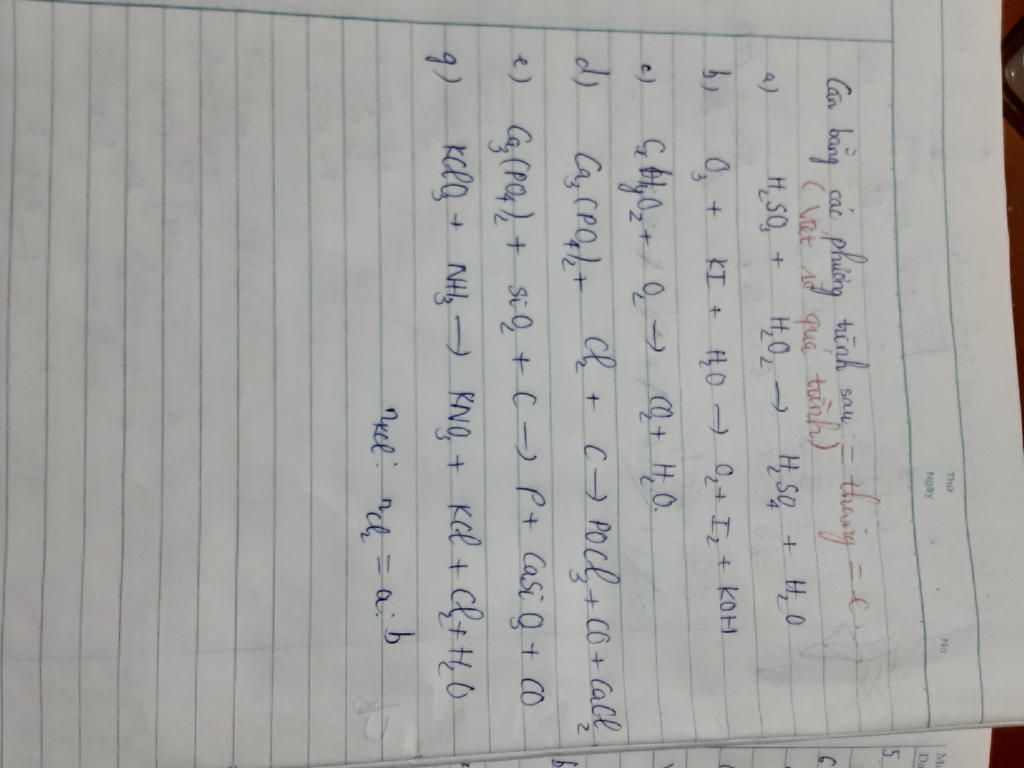 Thứ
Ngày
No.
Cân bằng các phương trình sau: = thăng = e
(Viết rõ quá trình)
a) H₂SO₃ + H₂O₂ → H₂SO₄ + H₂O
b) O₃ + KI + H₂O → O₂ + I₂ + KOH
c) O₂ + O₂ → CO₂ + H₂O.
d) Ca₃(PO₄)₂ + Cl₂ + C → POCl₃ + CO + CaCl₂
e) Ca₃(PO₄)₂ + SiO₂ + C → P + CaSiO₃ + CO
g) KClO₃ + NH₃ → KNO₃ + KCl + Cl₂ + H₂O
nKCl : nCl₂ = a : b